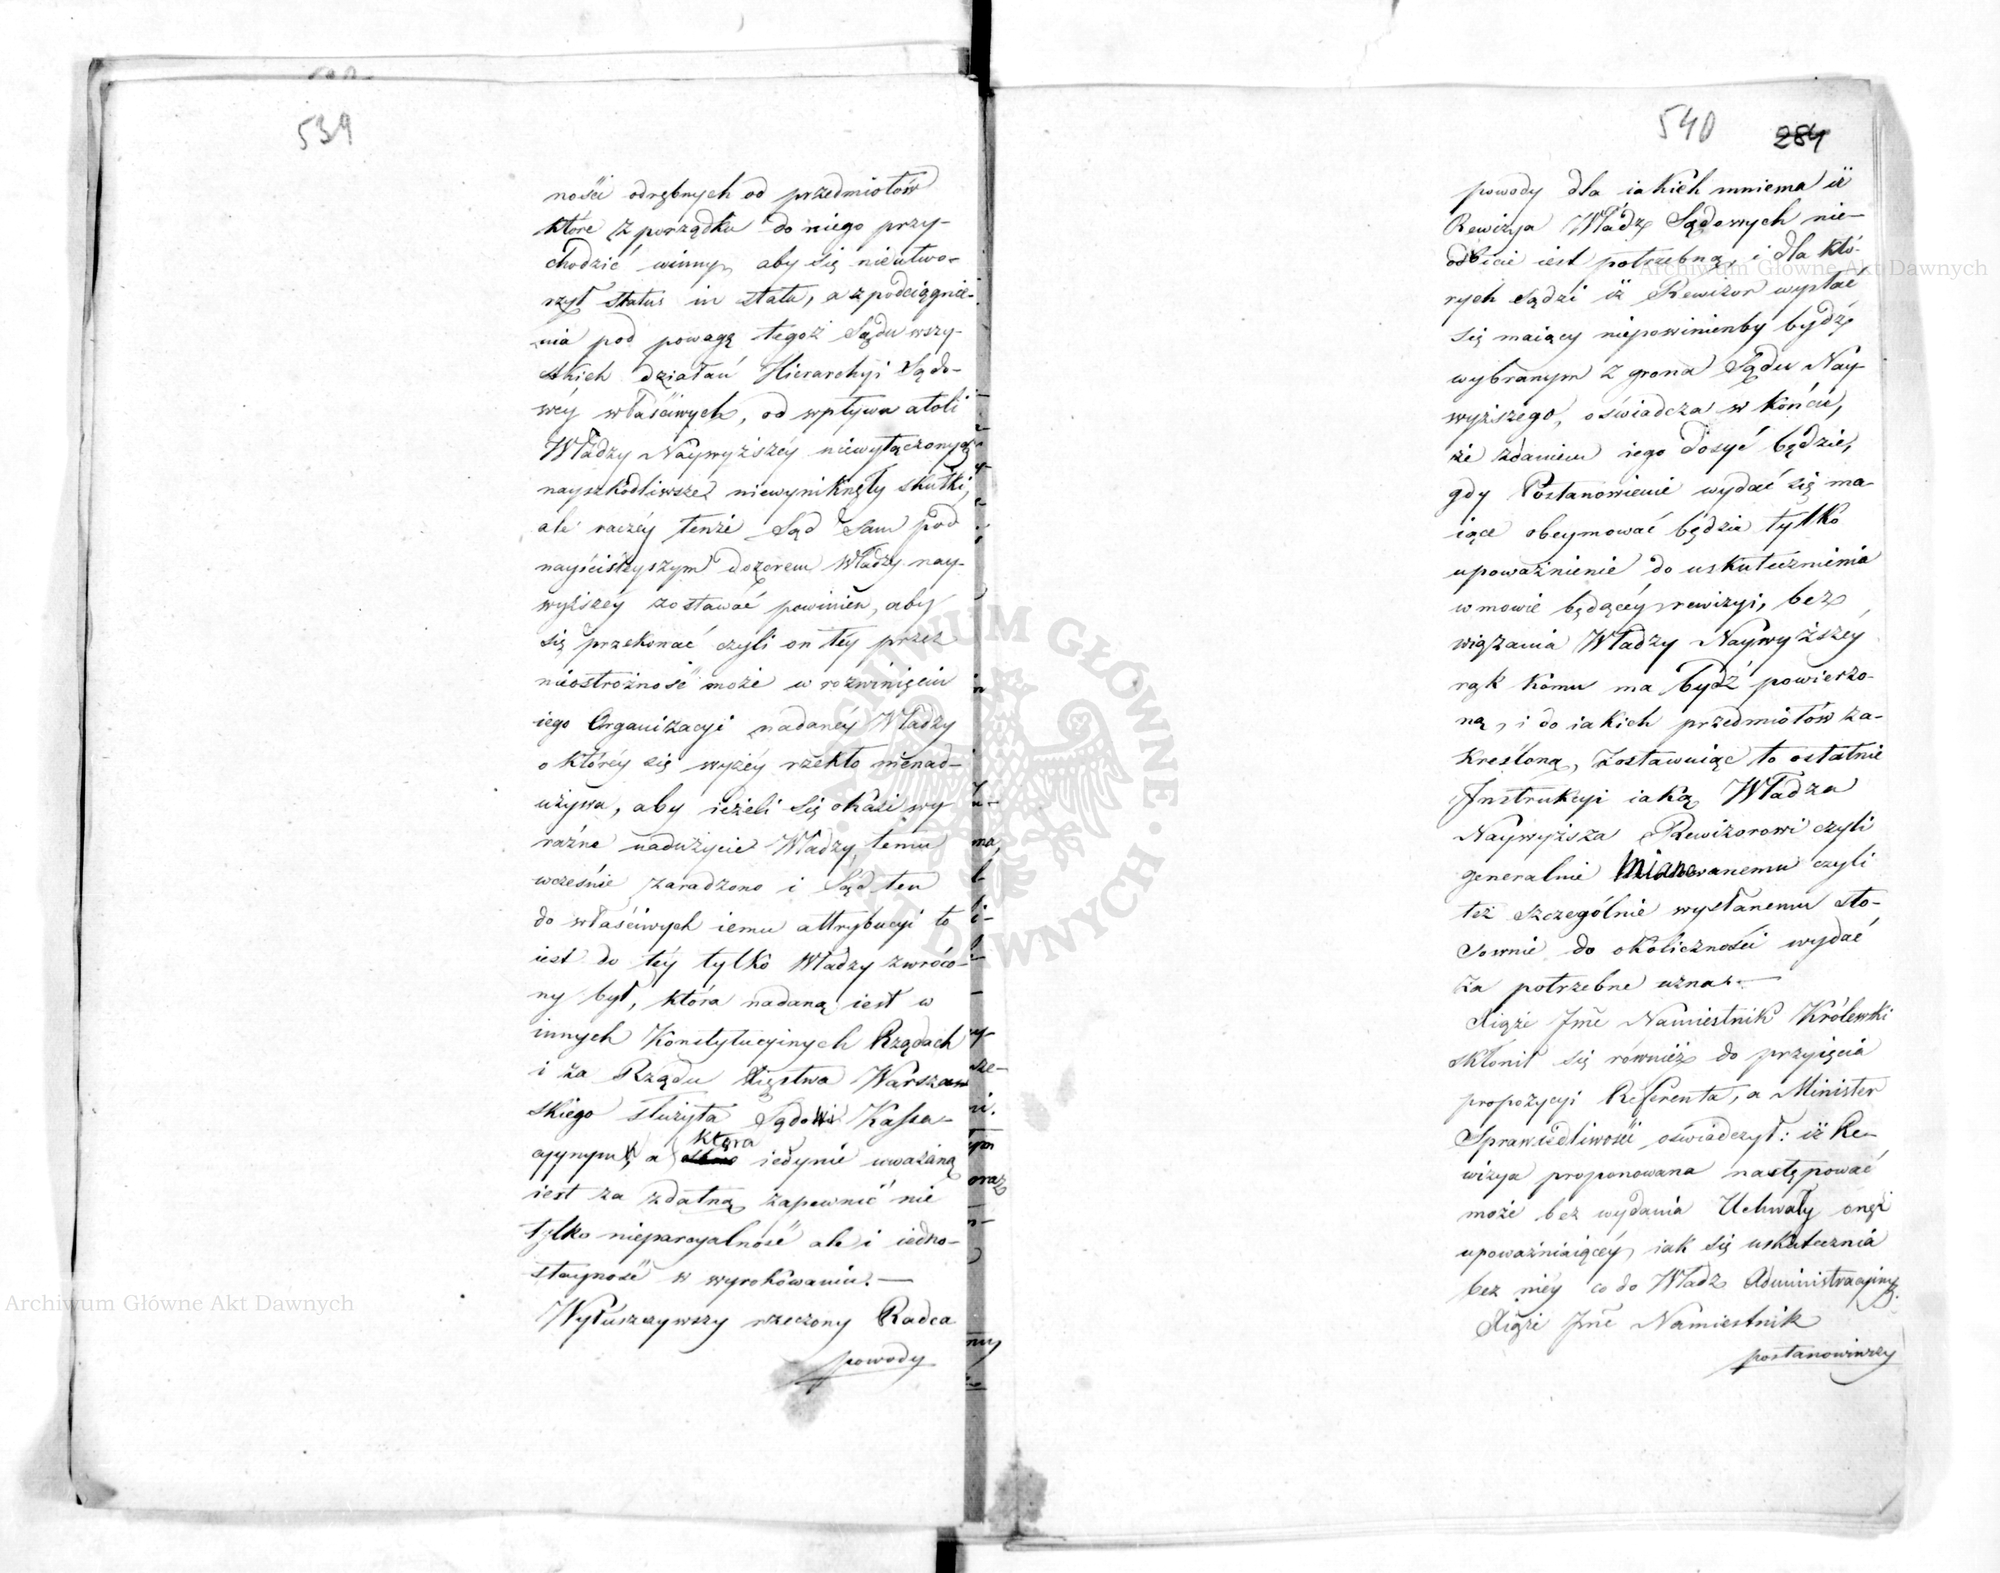 539
ności odrębnych od przedmiotów
które z porządku do niego przy-
chodzić winny, aby się nieutwo-
rzył status in statu, a z podciągnie-
nia pod powagę tegoż Sądu wszy-
stkich działań Hierarchyi Sądo-
wéy właściwych, od wpływu atoli
Władzy Naywyższéy niewyłączonych
nayszkodliwsze niewyniknęły skutki,
ale raczéy tenże Sąd Sam pod
nayściśleyszym dozorem Władzy nay-
wyższéy zostawać powinien, aby
się przekonać czyli on téy przez
nieostrożność może w rozwinięciu
iego Organizacyi nadanéy Władzy
o któréy się wyżéy rzekło nienad-
używa, aby ieżeli się okaże wy
raźne nadużycie Władzy, temu
wcześnie zaradzono i Sąd ten
do właściwych iemu attrybucyi to
iest do téy tylko Władzy zwróco-
ny był, która nadaną iest w
innych Konstytucyinych Rządach
i za Rządu Xięstwa Warszaw
skiego służyła Sądowi Kassa-
cyjnym, a która iedynie uważaną
iest za zdatną zapewnić nie
tylko nieparcyalność ale i iedno-
stayność w wyrokowaniu.—
Wyłuszczywszy rzeczony Radca
powody
540 284
powody dla iakich mniema iż
Rewizya Władz Sądowych nie-
odbicie iest potrzebną, i dla któ-
rych sądzi iż Rewizor wysłać
się maiący niepowinienby bydź
wybranym z grona Sądu Nay-
wyższego, oświadcza w końcu,
że zdaniem iego dosyć będzie,
gdy Postanowienie wydać się ma-
iące obeymować będzie tylko
upoważnienie do uskutecznienia
w mowie będącéy rewizyi, bez
wiązania Władzy Naywyższéy
rąk komu ma bydź powierzo-
ną, i do iakich przedmiotów za-
kreśloną, zostawuiąc to ostatnie
Instrukcyi iaką Władza
Naywyższa Rewizorowi czyli
generalnie mianowanemu czyli
też szczególnie wysłanemu sto-
sownie do okoliczności wydać
za potrzebne uzna.—
Xiąże Jmć Namiestnik Królewski
skłonił się również do przyięcia
propozycyi Referenta, a Minister
Sprawiedliwości oświadczył: iż Re-
wizya proponowana następować
może bez wydania Uchwały onęż
upoważniaiącéy, iak się uskutecznia
bez niéy co do Władz Administracyinych.
Xiąże Jmć Namiestnik
postanowiwszy
Archiwum Główne Akt Dawnych
Archiwum Główne Akt Dawnych
ARCHIWUM GŁÓWNE AKT DAWNYCH